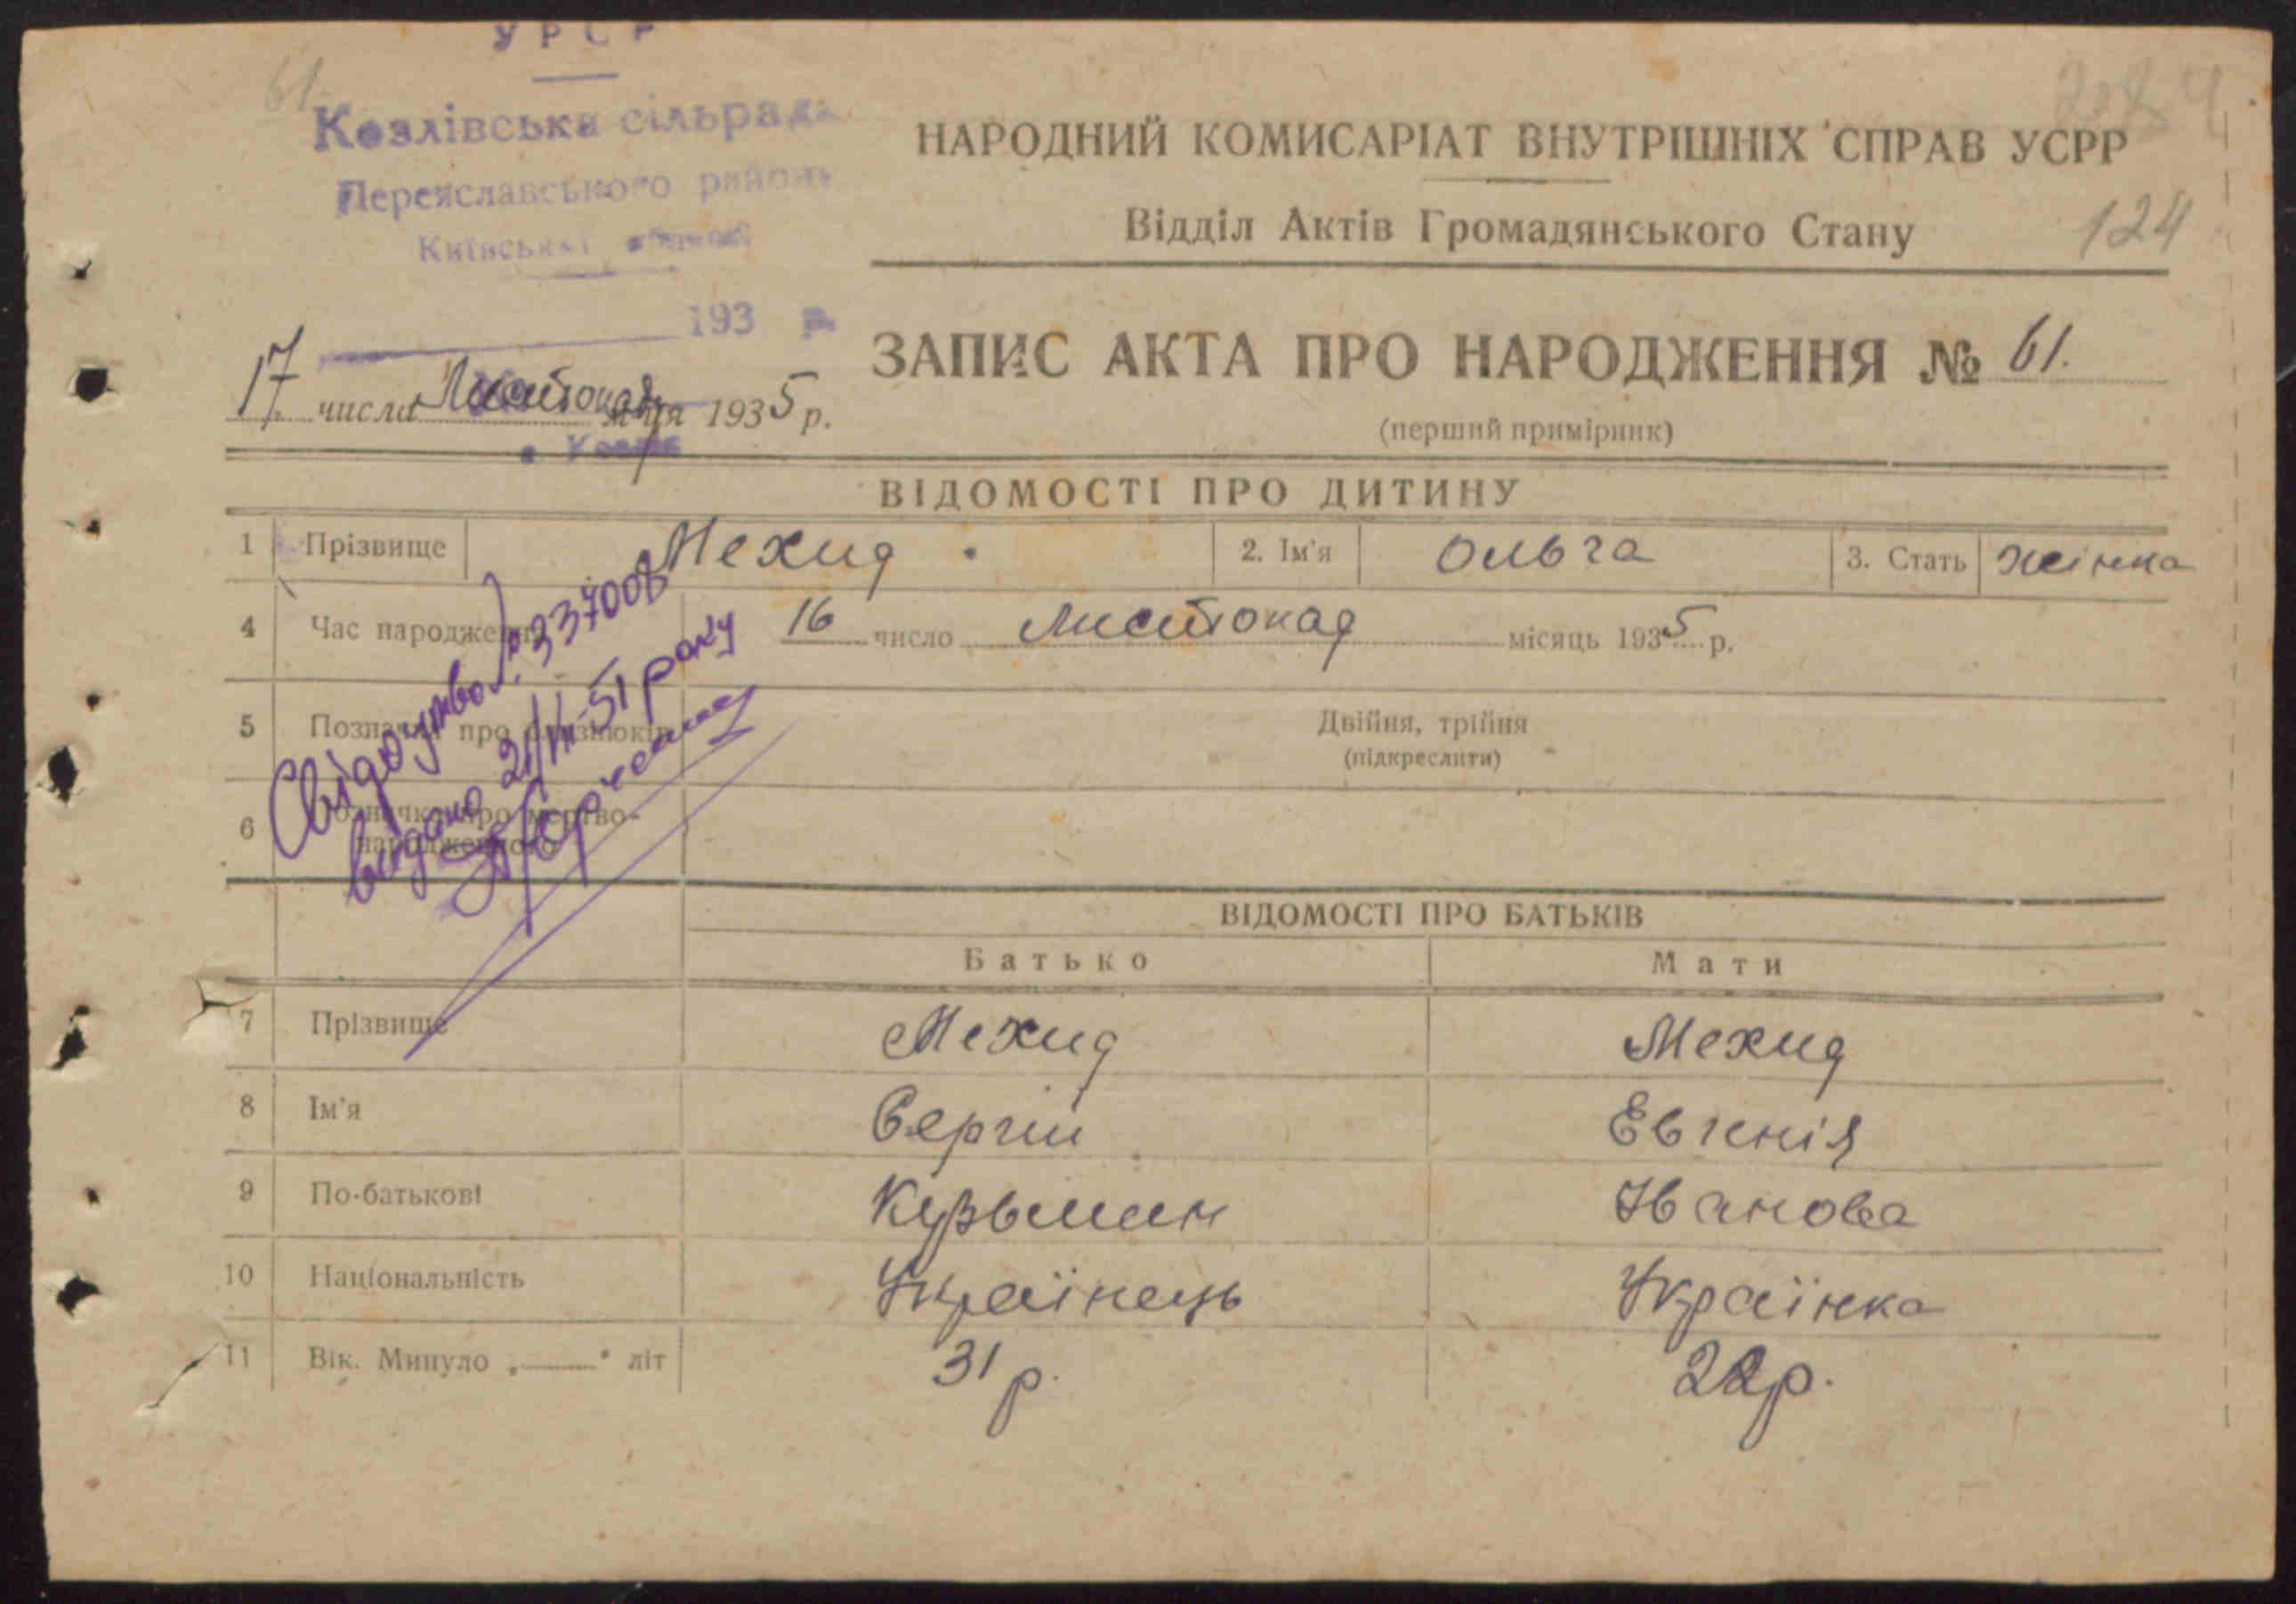 УРСР
61.
Козлівська сільрада
Переяславського району
Київської області
193 р.
284
НАРОДНИЙ КОМИСАРІАТ ВНУТРІШНІХ СПРАВ УСРР
Відділ Актів Громадянського Стану
124
17 числа Листопад м-ця 1935 р.
с. Козлів
ЗАПИС АКТА ПРО НАРОДЖЕННЯ № 61.
(перший примірник)
ВІДОМОСТІ ПРО ДИТИНУ
1 Прізвище Мехид 2. Ім'я Ольга 3. Стать жінка
4 Час народження 16 число Листопад місяць 1935 р.
5 Позначка про близнюків Двійня, трійня
(підкреслити)
6 Позначка про мертво-
народженого
Свідоцтво № 337008
видано 21/III-51 року
ВІДОМОСТІ ПРО БАТЬКІВ
Батько Мати
7 Прізвище Мехид Мехид
8 Ім'я Сергій Евгенія
9 По-батькові Кузьмин Іванова
10 Національність Українець Українка
11 Вік. Минуло „——" літ 31 р. 22 р.